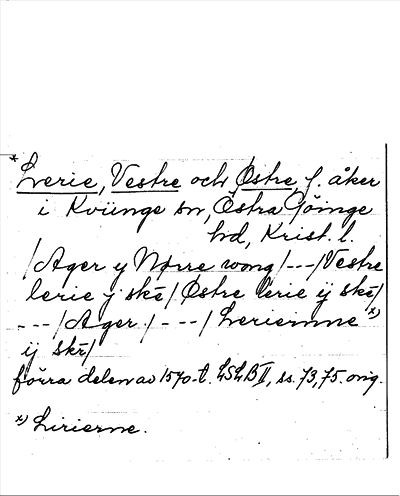 * Lerie, Vestre och Østre, f. åker
i Kviinge sn, Östra Göinge
hd, Krist. l.
/Ager y Nørre wong/---/Vestre
lerie y skè/ Østre lerie ij skè/
---/Ager /---/ Leriernne x)
ij skr/
förra delen av 1570-t. LSLB II, ss. 73, 75. orig.
x) Lirierne.